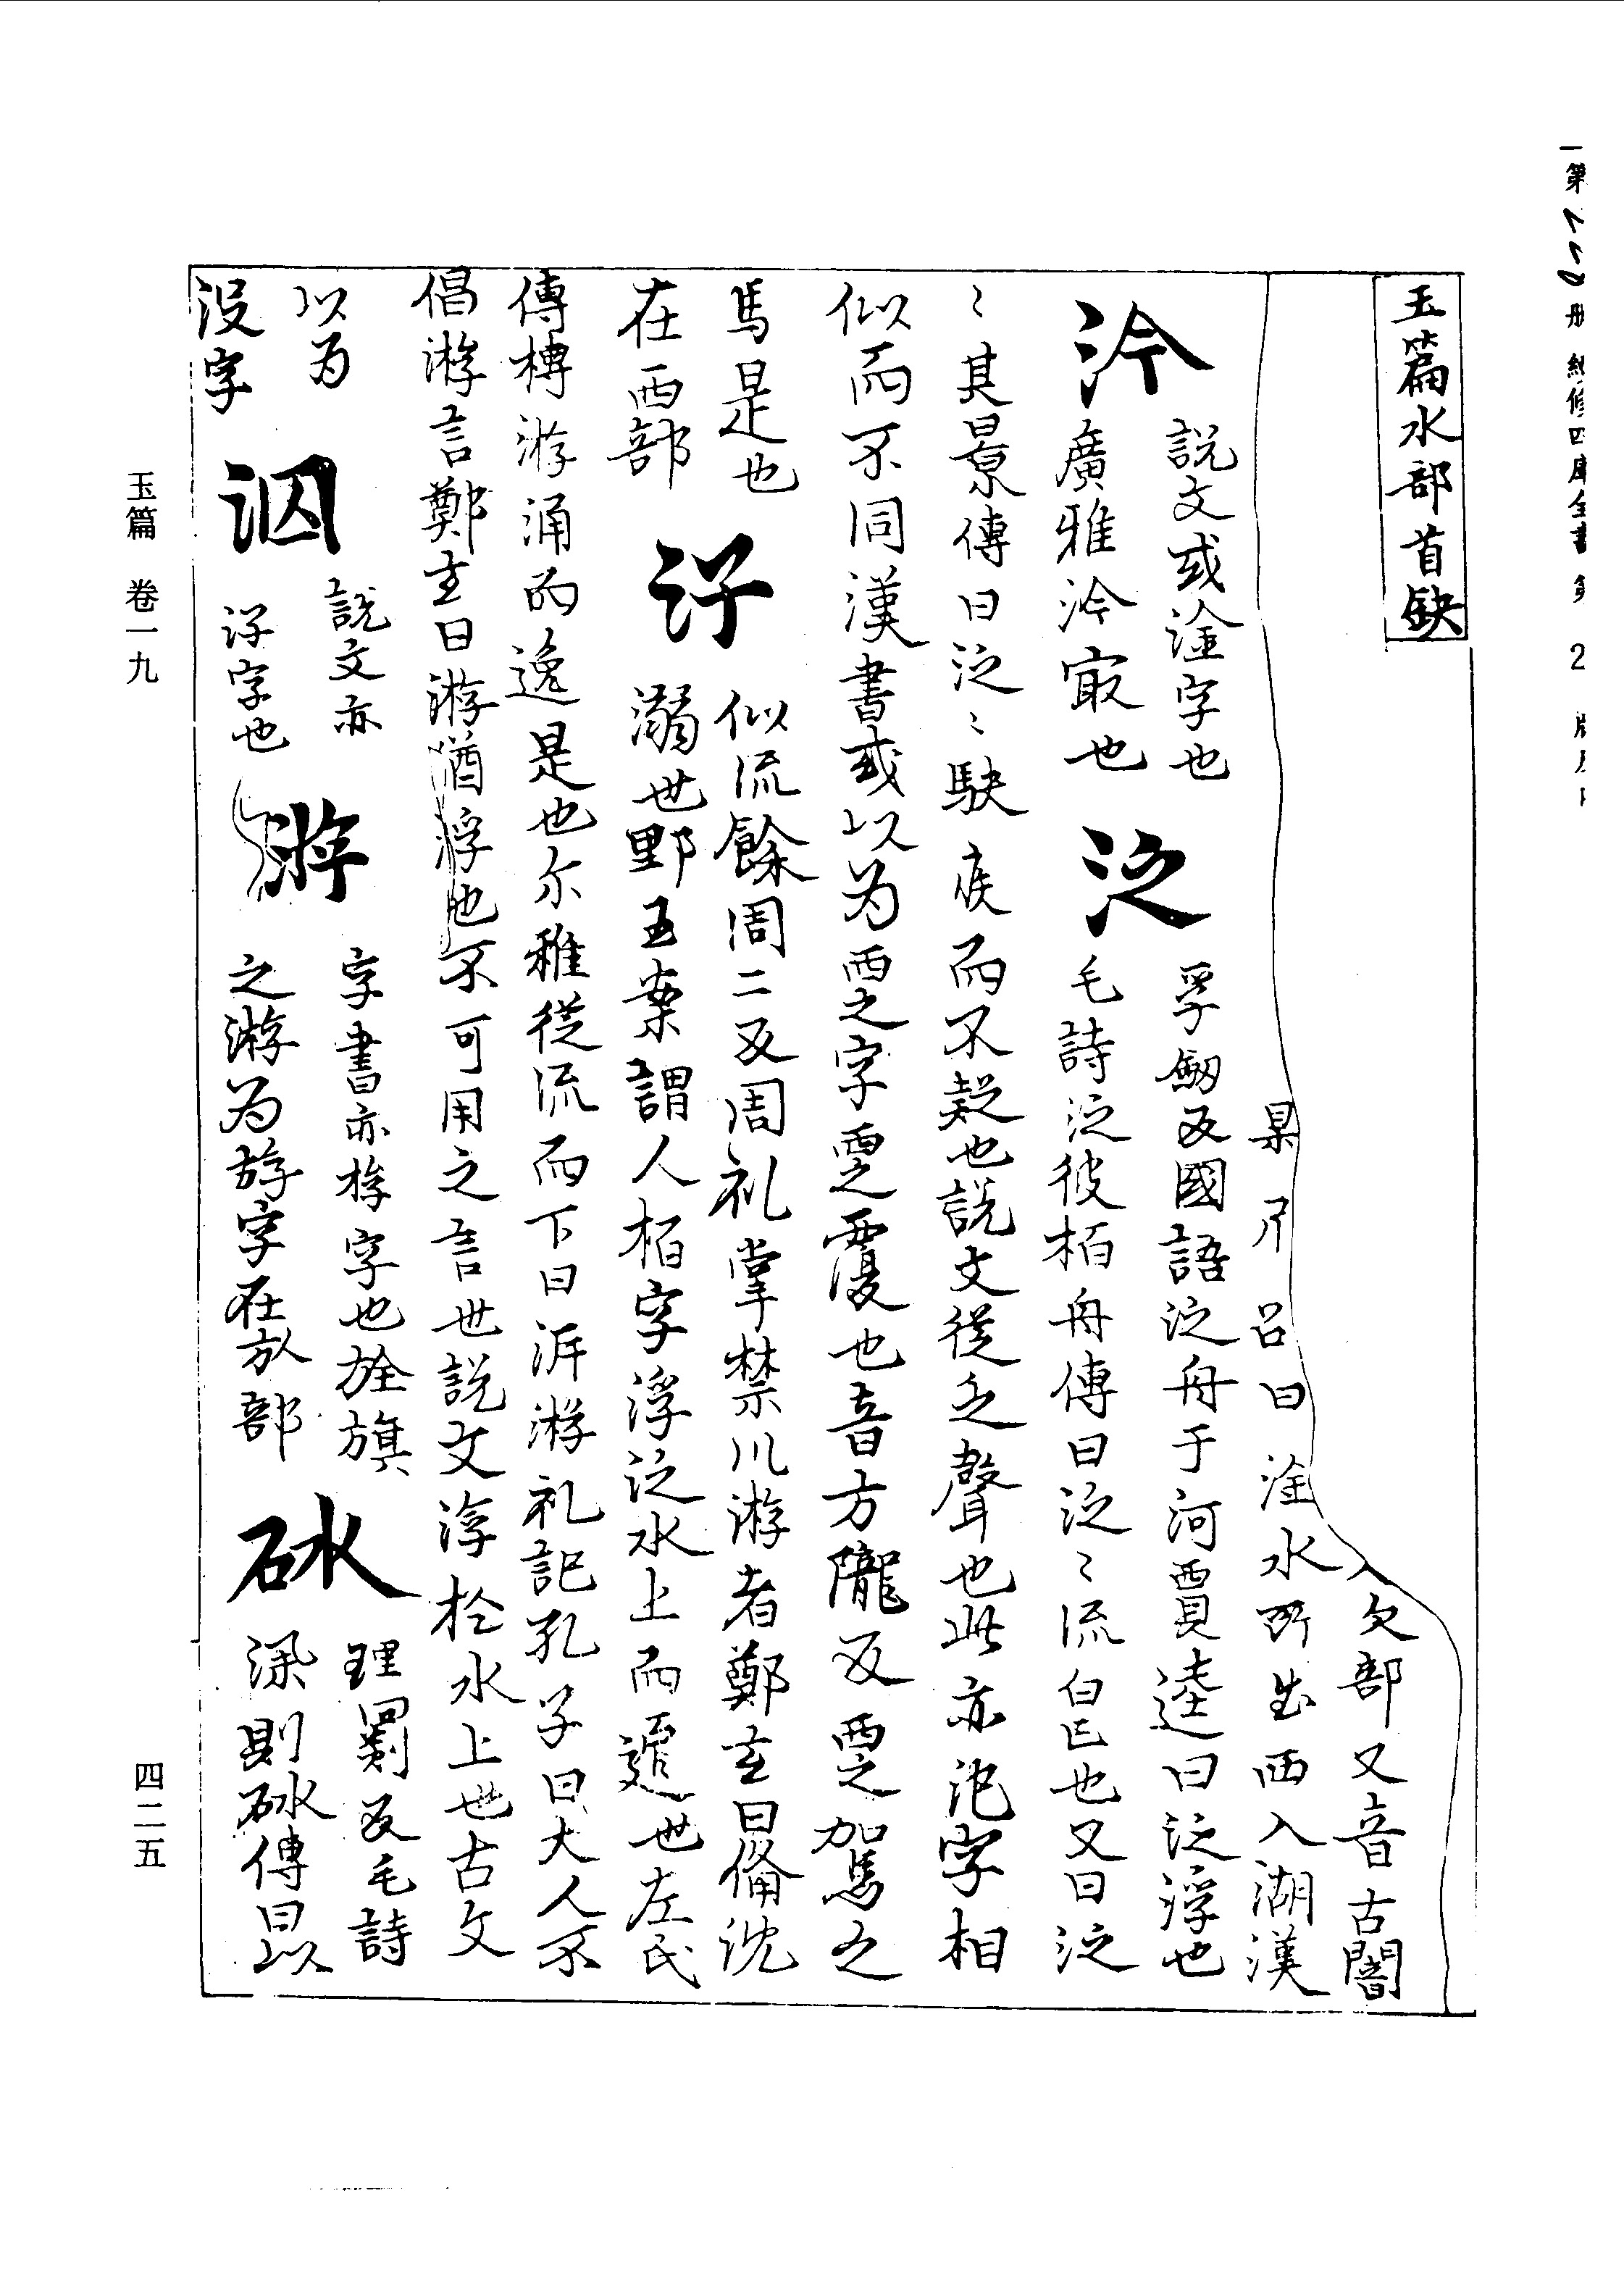 玉篇水部首缺
欠部又音古闇
呂曰淦水所出西入湖漢
汵 說文或淦字也
廣雅汵㝡也
泛 孚劒反國語泛舟于河賈逵曰泛浮也
毛詩泛彼柏舟傳曰泛〻流皃也又曰泛
〻其景傳曰泛〻駃疾而不礙也說文從乏聲也此亦氾字相
似而不同漢書或以为覂字覂覆也音方隴反覂駕之
馬是也
在西部
汓 似流餘周二反周礼掌禁川游者鄭玄曰俻沈
溺世野王案謂人栢字浮泛水上而遊世左氏
傳槫游涌而逸是也尓雅從流而下曰泝游礼記孔子曰大人不
倡游言鄭玄曰游猶浮也不可用之言世說文浮於水上也古文
以为
没字
泅 說文亦
汓字也
游 字書亦㳺字也旌旗
之游为斿字在㫃部
砅 理罽反毛詩
深則砅傳曰以
玉篇 卷一九
四二五